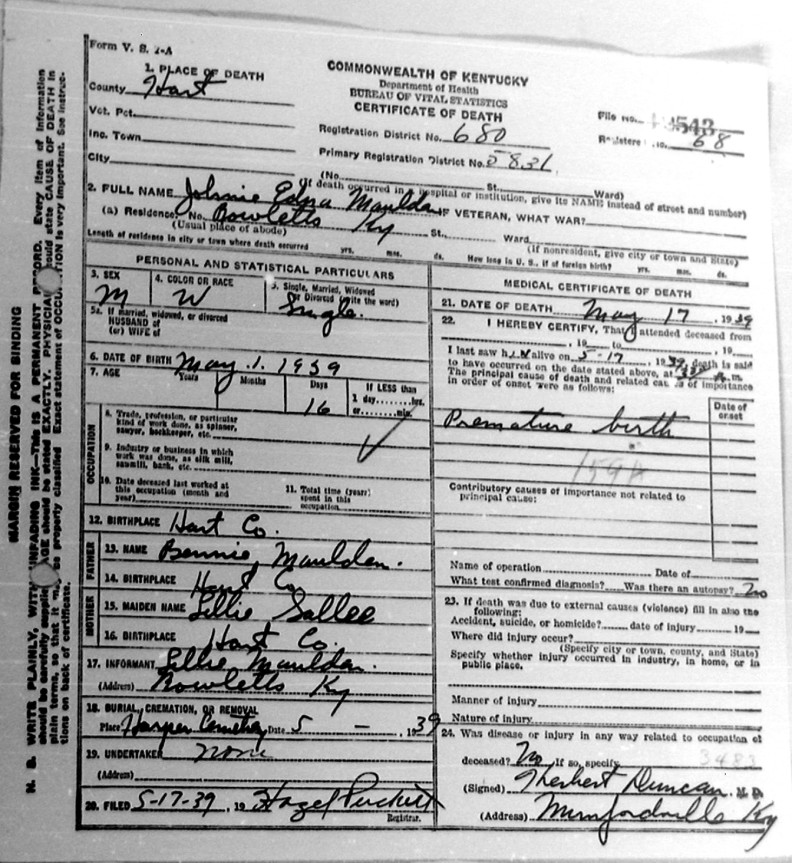 Form V. S. 1-A
COMMONWEALTH OF KENTUCKY
Department of Health
BUREAU OF VITAL STATISTICS
CERTIFICATE OF DEATH
1. PLACE OF DEATH
County Hart
Vot. Pct.
Inc. Town
City
Registration District No. 680
Primary Registration District No. 5831
File No.
Registered No. 68
(No. St. Ward)
(If death occurred in a hospital or institution, give its NAME instead of street and number)
2. FULL NAME Johnie Edna Maulden IF VETERAN, WHAT WAR?
(a) Residence. No. Rowletts Ky St., Ward
(Usual place of abode) (If nonresident, give city or town and State)
Length of residence in city or town where death occurred yrs. mos. ds. How long in U. S., if of foreign birth? yrs. mos. ds.
PERSONAL AND STATISTICAL PARTICULARS
3. SEX M
4. COLOR OR RACE W
5. Single, Married, Widowed
or Divorced (write the word)
Single
5a. If married, widowed, or divorced
HUSBAND of
(or) WIFE of
6. DATE OF BIRTH May 1. 1939
7. AGE Years Months Days 16
If LESS than
1 day......hrs.
or......min.
OCCUPATION
8. Trade, profession, or particular
kind of work done, as spinner,
sawyer, bookkeeper, etc.
9. Industry or business in which
work was done, as silk mill,
sawmill, bank, etc.
10. Date deceased last worked at
this occupation (month and
year)
11. Total time (years)
spent in this
occupation
12. BIRTHPLACE Hart Co.
FATHER
13. NAME Bennie Maulden.
14. BIRTHPLACE Hart Co
MOTHER
15. MAIDEN NAME Lillie Sallee
16. BIRTHPLACE Hart Co.
17. INFORMANT Lillie Maulden.
(Address) Rowletts Ky
18. BURIAL, CREMATION, OR REMOVAL
Place Harper Cemetery Date 5 - , 1939
19. UNDERTAKER none
(Address)
20. FILED 5-17-39, 19 Hazel Puckett
Registrar.
MEDICAL CERTIFICATE OF DEATH
21. DATE OF DEATH May 17, 1939
22. I HEREBY CERTIFY, That I attended deceased from
, 19 to , 19
I last saw him alive on 5-17 1939, death is said
to have occurred on the date stated above, at m.
The principal cause of death and related causes of importance
in order of onset were as follows:
Date of
onset
Premature birth
159A
Contributory causes of importance not related to
principal cause:
Name of operation Date of
What test confirmed diagnosis? Was there an autopsy? No
23. If death was due to external causes (violence) fill in also the
following:
Accident, suicide, or homicide? date of injury 19
Where did injury occur?
(Specify city or town, county, and State)
Specify whether injury occurred in industry, in home, or in
public place.
Manner of injury
Nature of injury
24. Was disease or injury in any way related to occupation of
deceased? No If so, specify 3483
(Signed) Herbert Duncan M. D.
(Address) Munfordville Ky
MARGIN RESERVED FOR BINDING
N. B. WRITE PLAINLY, WITH UNFADING INK—THIS IS A PERMANENT RECORD. Every item of information
should be carefully supplied. AGE should be stated EXACTLY. PHYSICIANS should state CAUSE OF DEATH in
plain terms, so that it may be properly classified. Exact statement of OCCUPATION is very important. See instruc-
tions on back of certificate.